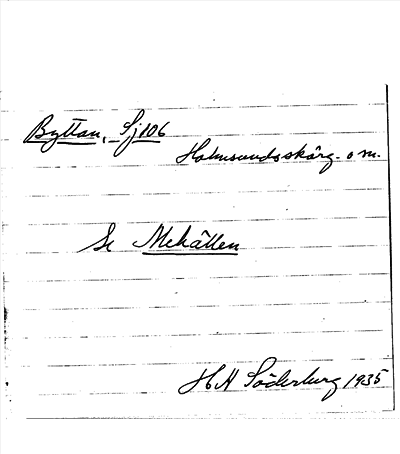 Byttan, Sj 106
Holmsundsskärg. o m.
Se Mehällen
H H Söderburg 1935